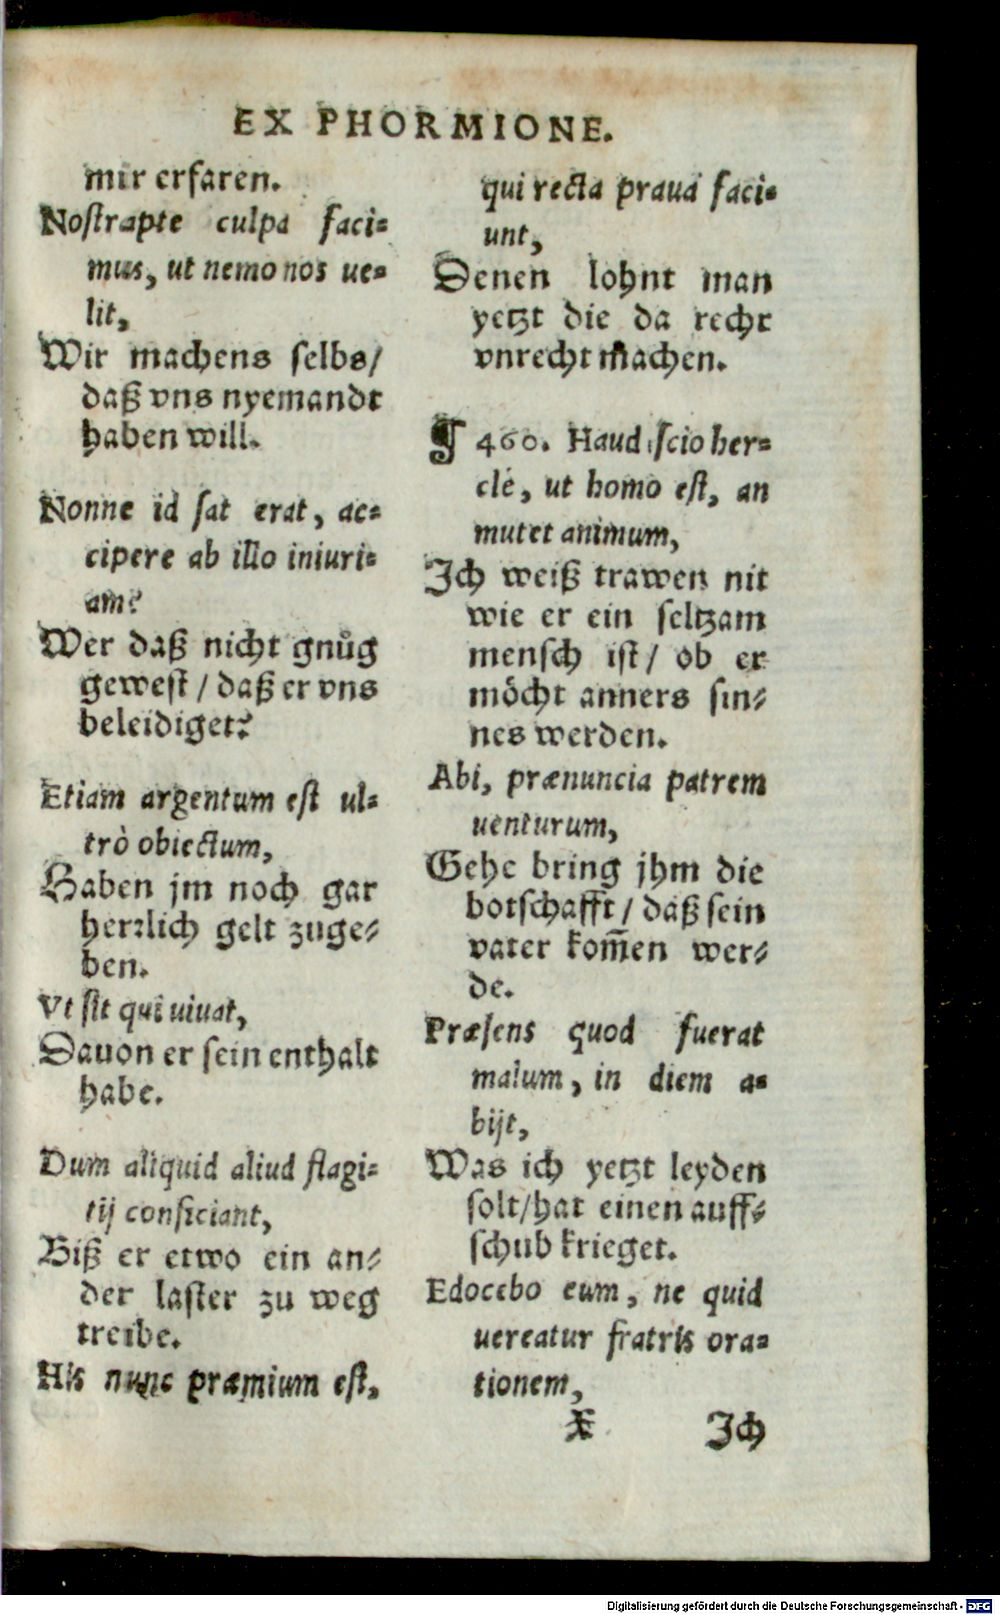 EX PHORMIONE.
mir erfaren.
Nostrapte culpa faci-
mus, ut nemo nos ue-
lit,
Wir machens selbs/
daß vns nyemandt
haben will.
Nonne id sat erat, ac-
cipere ab illo iniuri-
am?
Wer daß nicht gnůg
gewest / daß er vns
beleidiget?
Etiam argentum est ul-
trò obiectum,
Haben jm noch gar
herrlich gelt zuge-
ben.
Vt sit qui uiuat,
Dauon er sein enthalt
habe.
Dum aliquid aliud flagi-
tij conficiant,
Biß er etwo ein an-
der laster zu weg
treibe.
His nunc præmium est,
qui recta praua faci-
unt,
Denen lohnt man
yetzt die da recht
vnrecht machen.
¶ 460. Haud scio her-
cle, ut homo est, an
mutet animum,
Ich weiß trawen nit
wie er ein seltzam
mensch ist / ob er
möcht anners sin-
nes werden.
Abi, prænuncia patrem
uenturum,
Gehe bring jhm die
botschafft / daß sein
vater kom̄en wer-
de.
Præsens quod fuerat
malum, in diem a-
bijt,
Was ich yetzt leyden
solt/hat einen auff-
schub krieget.
Edocebo eum, ne quid
uereatur fratris ora-
tionem,
X Ich
Digitalisierung gefördert durch die Deutsche Forschungsgemeinschaft - DFG